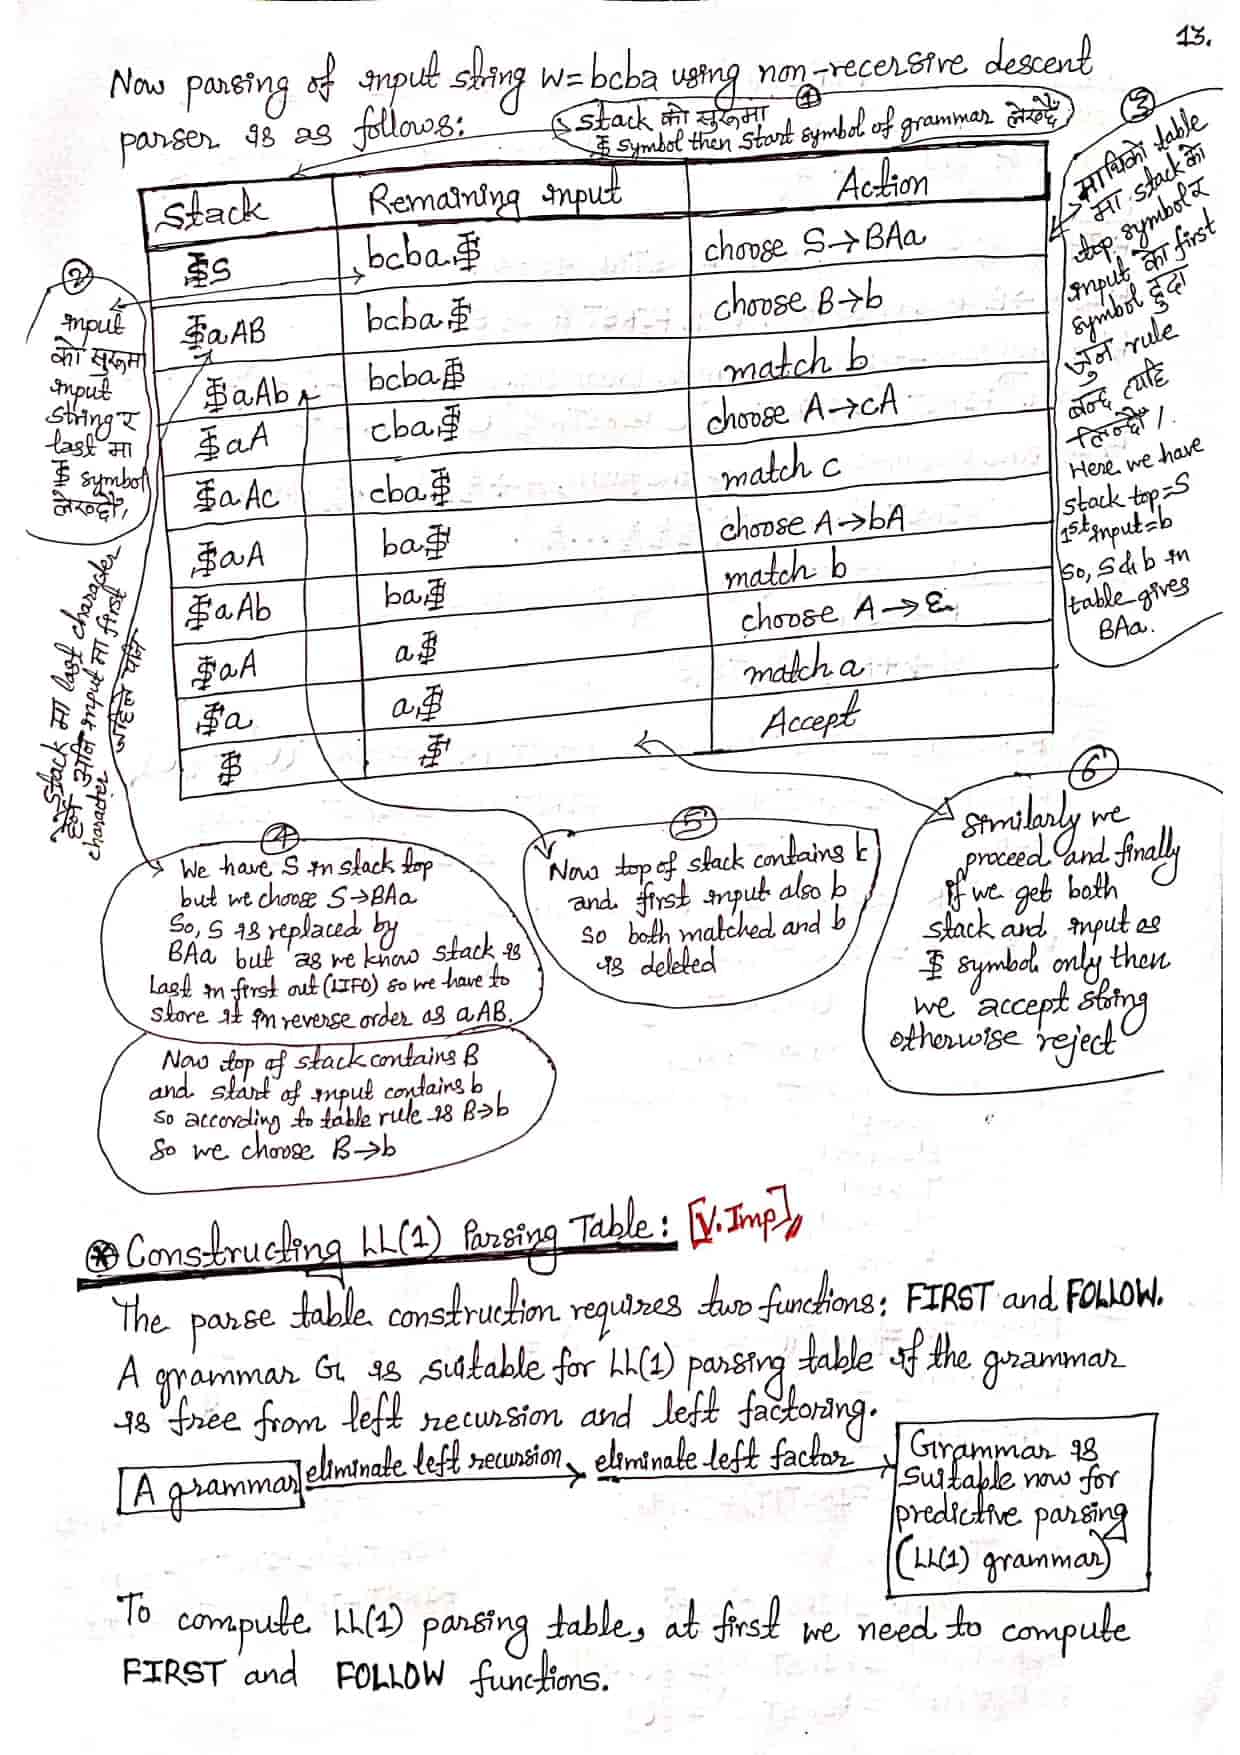 13.
Now parsing of input string w=bcba using non-recersive descent
parser is as follows:
①
stack को सुरूमा
$ symbol then Start symbol of grammar लेख्दै
Stack Remaining input Action
$S bcba$ choose S→BAa
$aAB bcba$ choose B→b
$aAb bcba$ match b
$aA cba$ choose A→cA
$aAc cba$ match c
$aA ba$ choose A→bA
$aAb ba$ match b
$aA a$ choose A→ε
$a a$ match a
$ $ Accept
②
input
को सुरूमा
input
string र
last मा
$ symbol
लेख्दो,
③
माथिको table
मा stack को
top symbol र
input को first
symbol हुदा
जुन rule
बन्द त्यहि
लिन्दो।
Here we have
stack top=S
1st input=b
So, S & b in
table gives
BAa.
Stack मा last character
हेर्ने अनि input मा first
character जहिले पनि
④
We have S in stack top
but we choose S→BAa
So, S is replaced by
BAa but as we know stack is
Last in first out (LIFO) so we have to
store it in reverse order as aAB.
Now top of stack contains B
and start of input contains b
so according to table rule is B→b
So we choose B→b
⑤
Now top of stack contains b
and first input also b
so both matched and b
is deleted
⑥
Similarly we
proceed and finally
if we get both
stack and input as
$ symbol only then
we accept string
otherwise reject
⊛ Constructing LL(1) Parsing Table: [V.Imp]
The parse table construction requires two functions: FIRST and FOLLOW.
A grammar G is suitable for LL(1) parsing table if the grammar
is free from left recursion and left factoring.
A grammar eliminate left recursion → eliminate left factor →
Grammar is
suitable now for
predictive parsing
(LL(1) grammar)
To compute LL(1) parsing table, at first we need to compute
FIRST and FOLLOW functions.